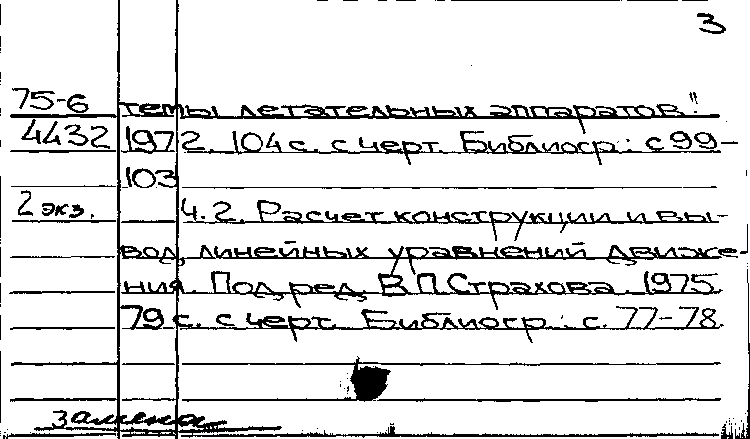 3
75-6 темы летательных аппаратов."
4432 1972. 104 с. с черт. Библиогр.: с 99-
103
2 экз. Ч. 2. Расчет конструкции и вы-
вод линейных уравнений движе-
ния. Под ред. В.П. Страхова. 1975.
79 с. с черт. Библиогр.: с. 77-78.
замена